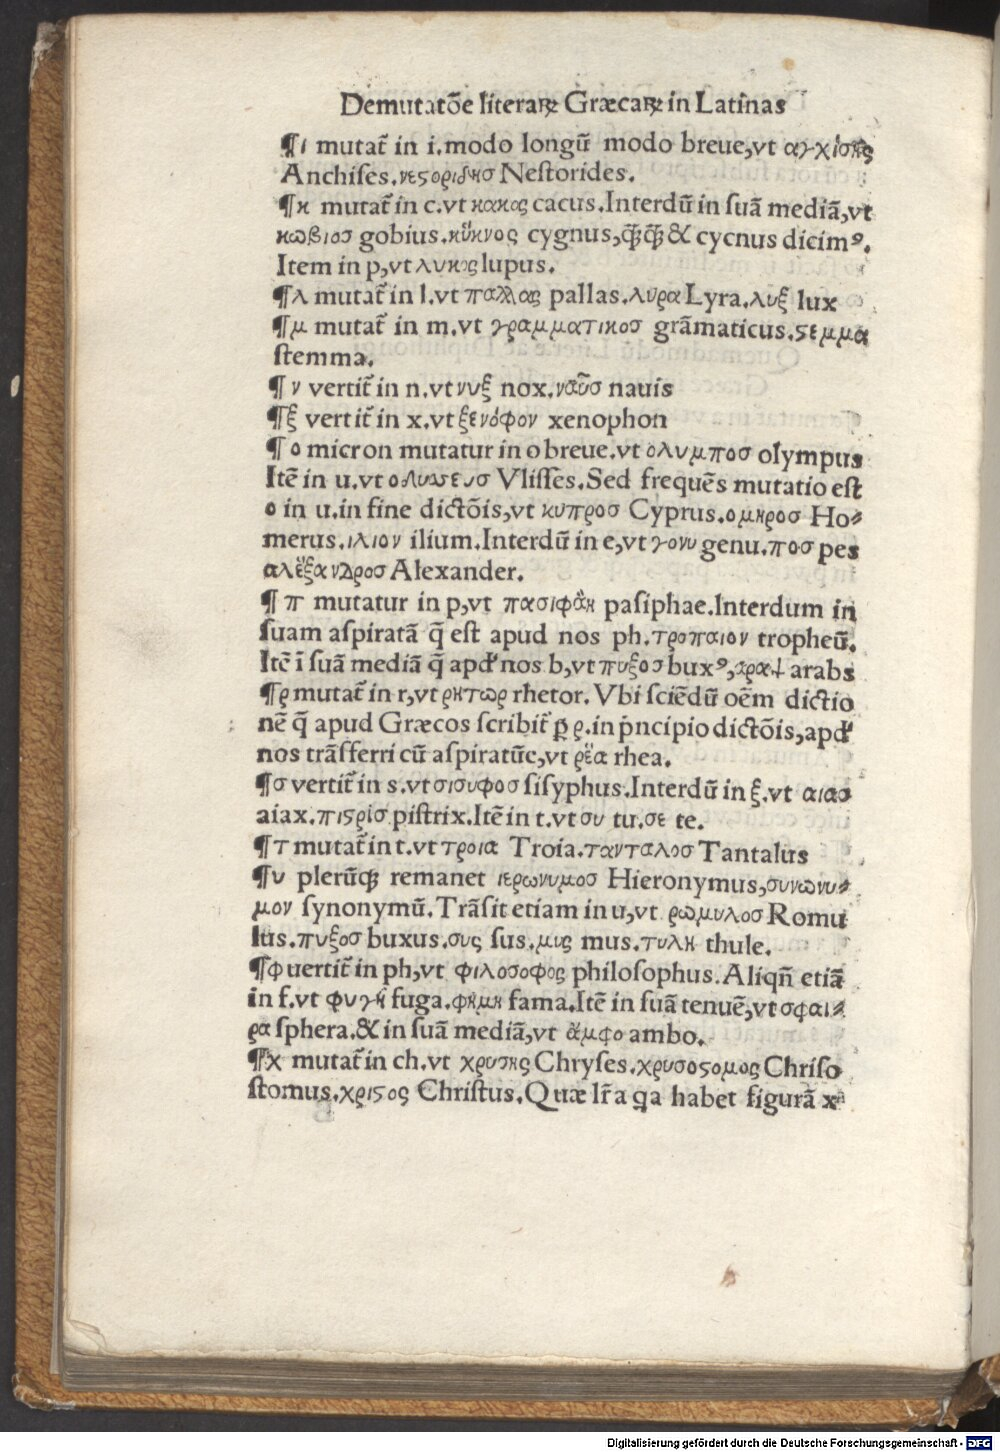 Demutatõe literaꝝ Græcaꝝ in Latinas
¶ι mutat᷑ in i.modo longũ modo breue,vt αγχίσης
Anchiſes.νεϛοριδησ Neſtorides.
¶κ mutat᷑ in c.vt κακος cacus.Interdũ in ſuã mediã,vt
κωβιοσ gobius.κὔκνος cygnus,q̃q̃ & cycnus dicimꝰ.
Item in p,vt λυκος lupus.
¶λ mutat᷑ in l.vt παλλας pallas.λυρα Lyra.λυξ lux
¶μ mutat᷑ in m.vt γραμματικοσ grãmaticus.ϛεμμα
ſtemma.
¶ν vertit᷑ in n.vt νυξ nox.ναῦσ nauis
¶ξ vertit᷑ in x.vt ξενόφον xenophon
¶ο micron mutatur in o breue.vt ολυμποσ olympus
Itẽ in u.vt ολυσσευσ Vliſſes.Sed frequẽs mutatio eſt
o in u.in fine dictõis,vt κυπροσ Cyprus.ομηροσ Ho⸗
merus.ιλιον ilium.Interdũ in e,vt γονυ genu.ποσ pes
αλἔξανδροσ Alexander.
¶π mutatur in p,vt πασιφἂη paſiphae.Interdum in
ſuam aſpiratã q̃ eſt apud nos ph.τροπαιον tropheũ.
Itẽ ĩ ſuã mediã q̃ apd' nos b,vt πυξοσ buxꝰ,αραψ arabs
¶ρ mutat᷑ in r,vt ρητωρ rhetor.Vbi ſciẽdũ oẽm dictio
nẽ q̃ apud Græcos ſcribit᷑ ꝑ ρ.in p̃ncipio dictõis,apd'
nos trãſferri cũ aſpiratũe,vt ρἔα rhea.
¶σ vertit᷑ in s.vt σισυφοσ ſiſyphus.Interdũ in ξ.vt αιασ
aiax.πιϛρίσ piſtrix.Itẽ in t.vt συ tu.σε te.
¶τ mutat᷑ in t.vt τροια Troia.τανταλοσ Tantalus
¶υ plerũqꝫ remanet ιερωνυμοσ Hieronymus,συνωνυ⸗
μον ſynonymũ.Trãſit etiam in u,vt ρωμυλοσ Romu
lus.πυξοσ buxus.συς ſus.μυς mus.τυλη thule.
¶φ uertit᷑ in ph,vt φιλοσοφος philoſophus.Aliqñ etiã
in f.vt φυγἢ fuga.φἢμη fama.Itẽ in ſuã tenuẽ,vt σφαι⸗
ρα ſphera.& in ſuã mediã,vt ἄμφο ambo.
¶χ mutat᷑ in ch.vt χρυσης Chryſes.χρυσοϛομος Chriſo
ſtomus.χριϛος Chriſtus.Quæ lr̃a qa habet figurã xⁿ